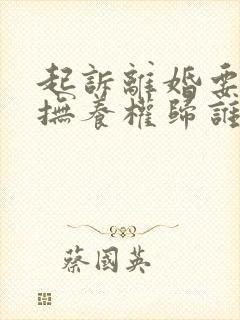 起訴離婚要
撫養權歸誰
蔡國英